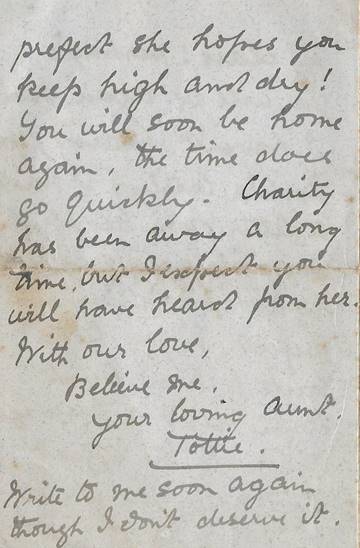 prefect she hopes you
keep high and dry!
You will soon be home
again, the time does
go quickly. Charity
has been away a long
time, but I expect you
will have heard from her.
With our love,
Believe me,
your loving aunt.
Tottie.
Write to me soon again
though I don't deserve it.